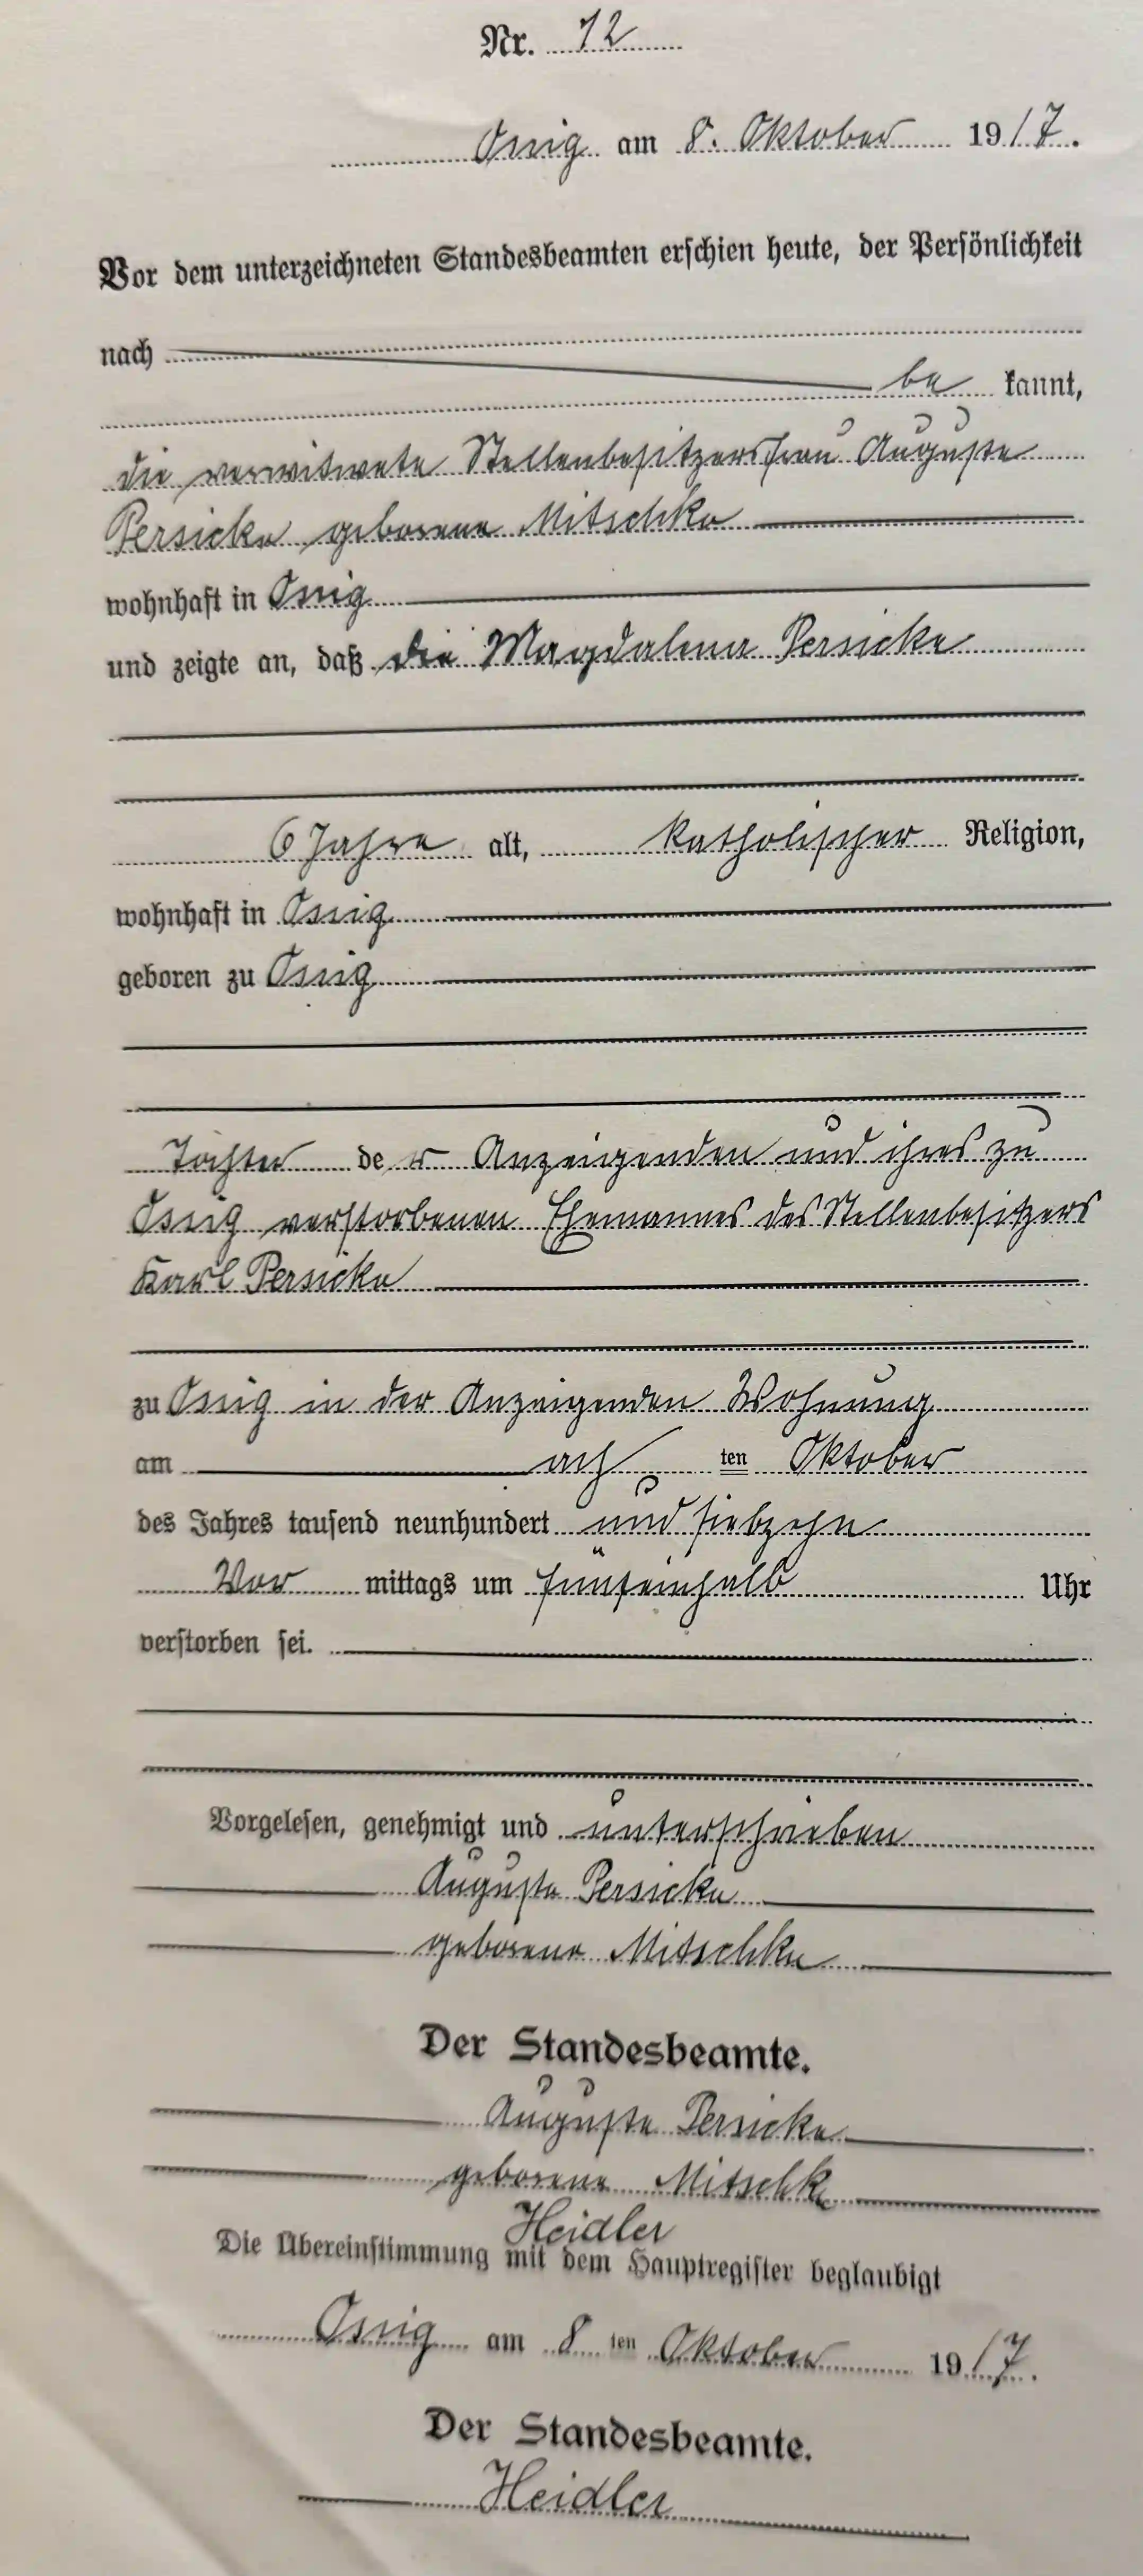 Nr. 12
Ossig am 8. Oktober 1917.
Vor dem unterzeichneten Standesbeamten erschien heute, der Persönlichkeit
nach
be kannt,
die verwitwete Stellenbesitzersfrau Auguste
Persicke geborene Mitschke
wohnhaft in Ossig
und zeigte an, daß die Magdalena Persicke
6 Jahre alt, katholischer Religion,
wohnhaft in Ossig
geboren zu Ossig
Tochter der Anzeigenden und ihres zu
Ossig verstorbenen Ehemannes des Stellenbesitzers
Karl Persicke
zu Ossig in der Anzeigenden Wohnung
am ach ten Oktober
des Jahres tausend neunhundert und siebzehn
Vor mittags um fünfeinhalb Uhr
verstorben sei.
Vorgelesen, genehmigt und unterschrieben
Auguste Persicke
geborene Mitschke
Der Standesbeamte.
Auguste Persicke
geborene Mitschke
Heidler
Die Übereinstimmung mit dem Hauptregister beglaubigt
Ossig am 8 ten Oktober 1917.
Der Standesbeamte.
Heidler